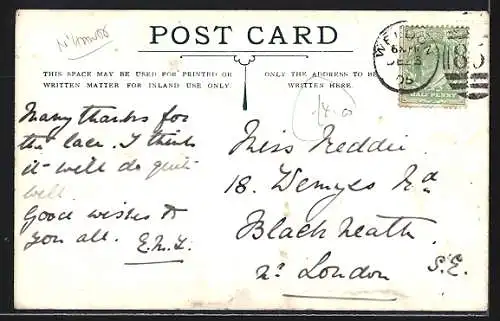 POST CARD
THIS SPACE MAY BE USED FOR PRINTED OR
WRITTEN MATTER FOR INLAND USE ONLY.
ONLY THE ADDRESS TO BE
WRITTEN HERE.
HALF PENNY
Many thanks for
the lace. I think
it will do quite
well.
Good wishes to
you all. E.M.L.
Miss Neddie
18. Wemyss Rd
Blackheath
Nr London S.E.